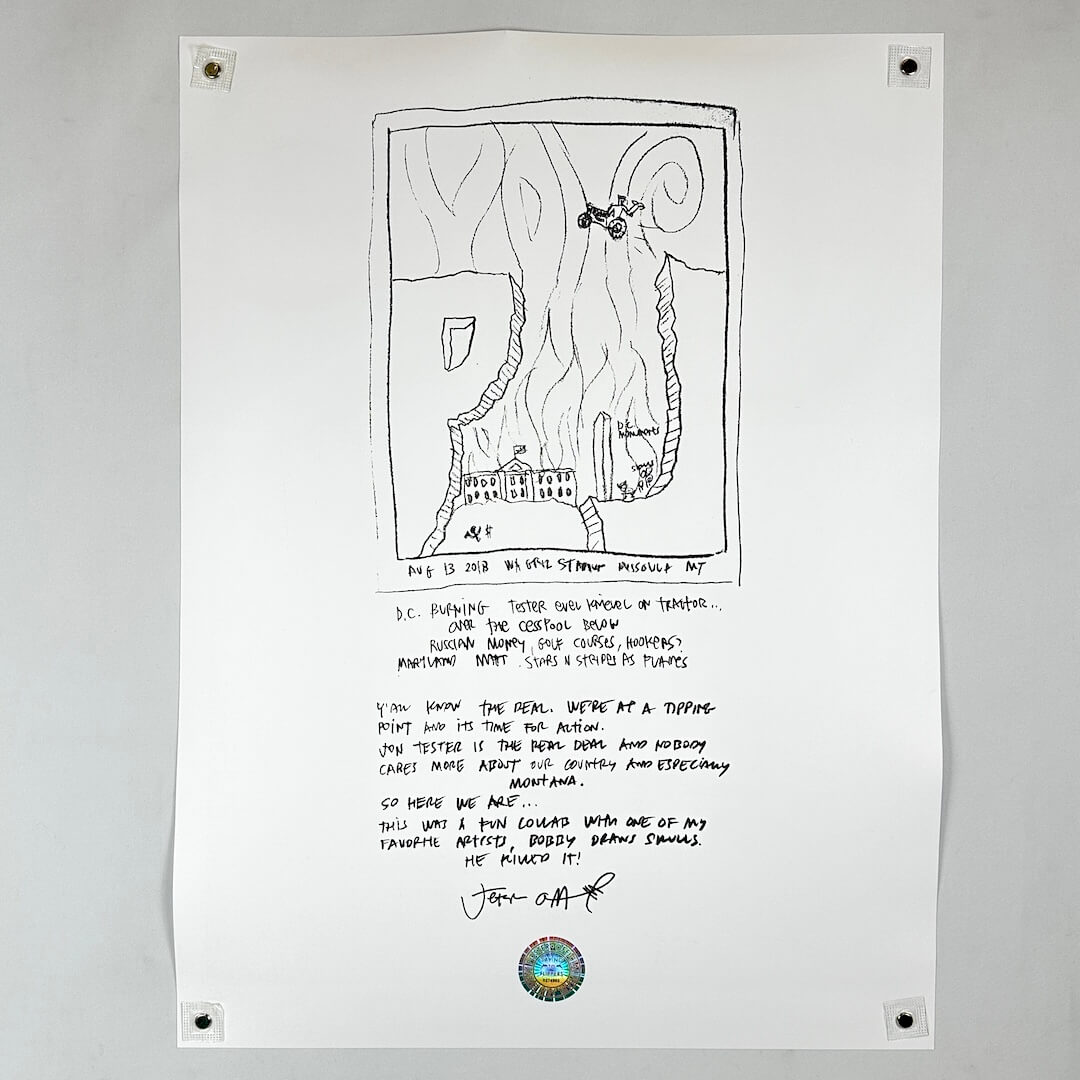 D.C.
MONUMENTS
SKULLS
$
AUG 13 2018 WA GRIZ STADIUM MISSOULA MT
D.C. BURNING TESTER EVEL KNIEVEL ON TRACTOR...
OVER THE CESSPOOL BELOW
RUSSIAN MONEY, GOLF COURSES, HOOKERS?
MARYLAND MATT . STARS N STRIPES AS FLAMES
Y'ALL KNOW THE DEAL. WE'RE AT A TIPPING
POINT AND ITS TIME FOR ACTION.
JON TESTER IS THE REAL DEAL AND NOBODY
CARES MORE ABOUT OUR COUNTRY AND ESPECIALLY
MONTANA.
SO HERE WE ARE...
THIS WAS A FUN COLLAB WITH ONE OF MY
FAVORITE ARTISTS, BOBBY DRAWS SKULLS.
HE KILLED IT!